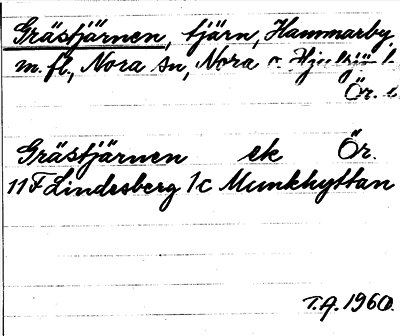 Grästjärnen, tjärn, Hammarby
m.fl., Nora sn, Nora o
Ör. l.
Grästjärnen ek Ör.
11F Lindesberg 1c Munkhyttan
T.A. 1960.